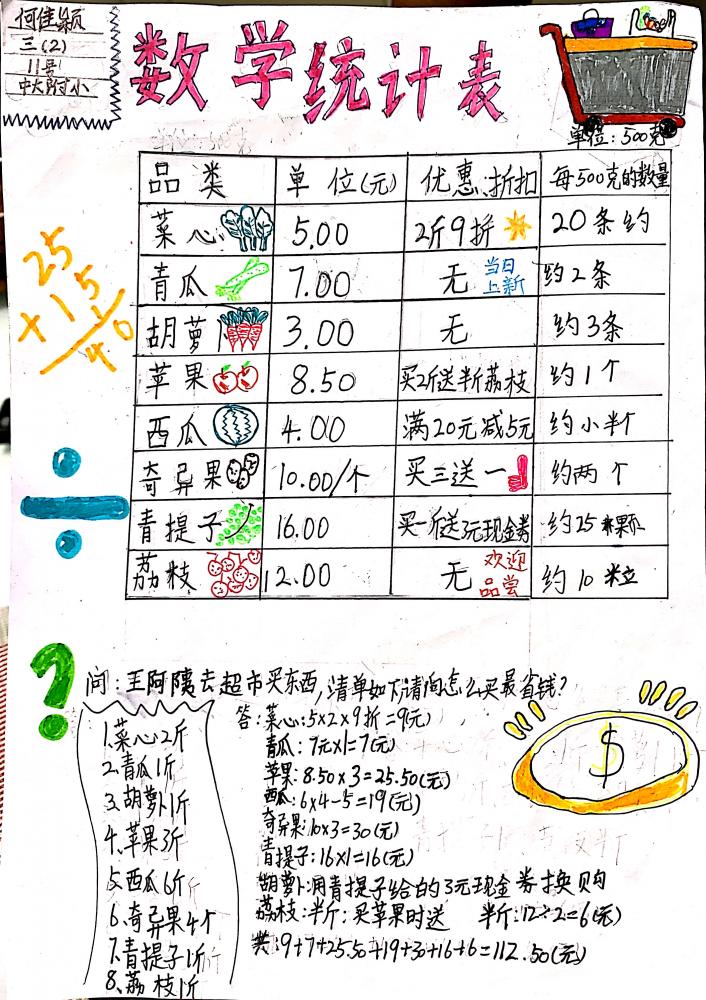 何佳颖
三(2)
11号
中大附小
数学统计表
单位:500克
品类 单位(元) 优惠、折扣 每500克的数量
菜心 5.00 2斤9折 20条约
青瓜 7.00 无 当日上新 约2条
胡萝卜 3.00 无 约3条
苹果 8.50 买2斤送半斤荔枝 约1个
西瓜 4.00 满20元减5元 约小半个
奇异果 10.00/个 买三送一 约两个
青提子 16.00 买一斤送3元现金券 约25颗
荔枝 12.00 无 欢迎品尝 约10粒
25
+15
40
÷
?
问:王阿姨去超市买东西,清单如下,请问怎么买最省钱?
1.菜心2斤
2.青瓜1斤
3.胡萝卜1斤
4.苹果3斤
5.西瓜6斤
6.奇异果4个
7.青提子1斤
8.荔枝1斤
答:菜心:5×2×9折=9(元)
青瓜:7元×1=7(元)
苹果:8.50×3=25.50(元)
西瓜:6×4-5=19(元)
奇异果:10×3=30(元)
青提子:16×1=16(元)
胡萝卜:用青提子给的3元现金券换购
荔枝:半斤:买苹果时送 半斤:12÷2=6(元)
共:9+7+25.50+19+30+16+6=112.50(元)
$